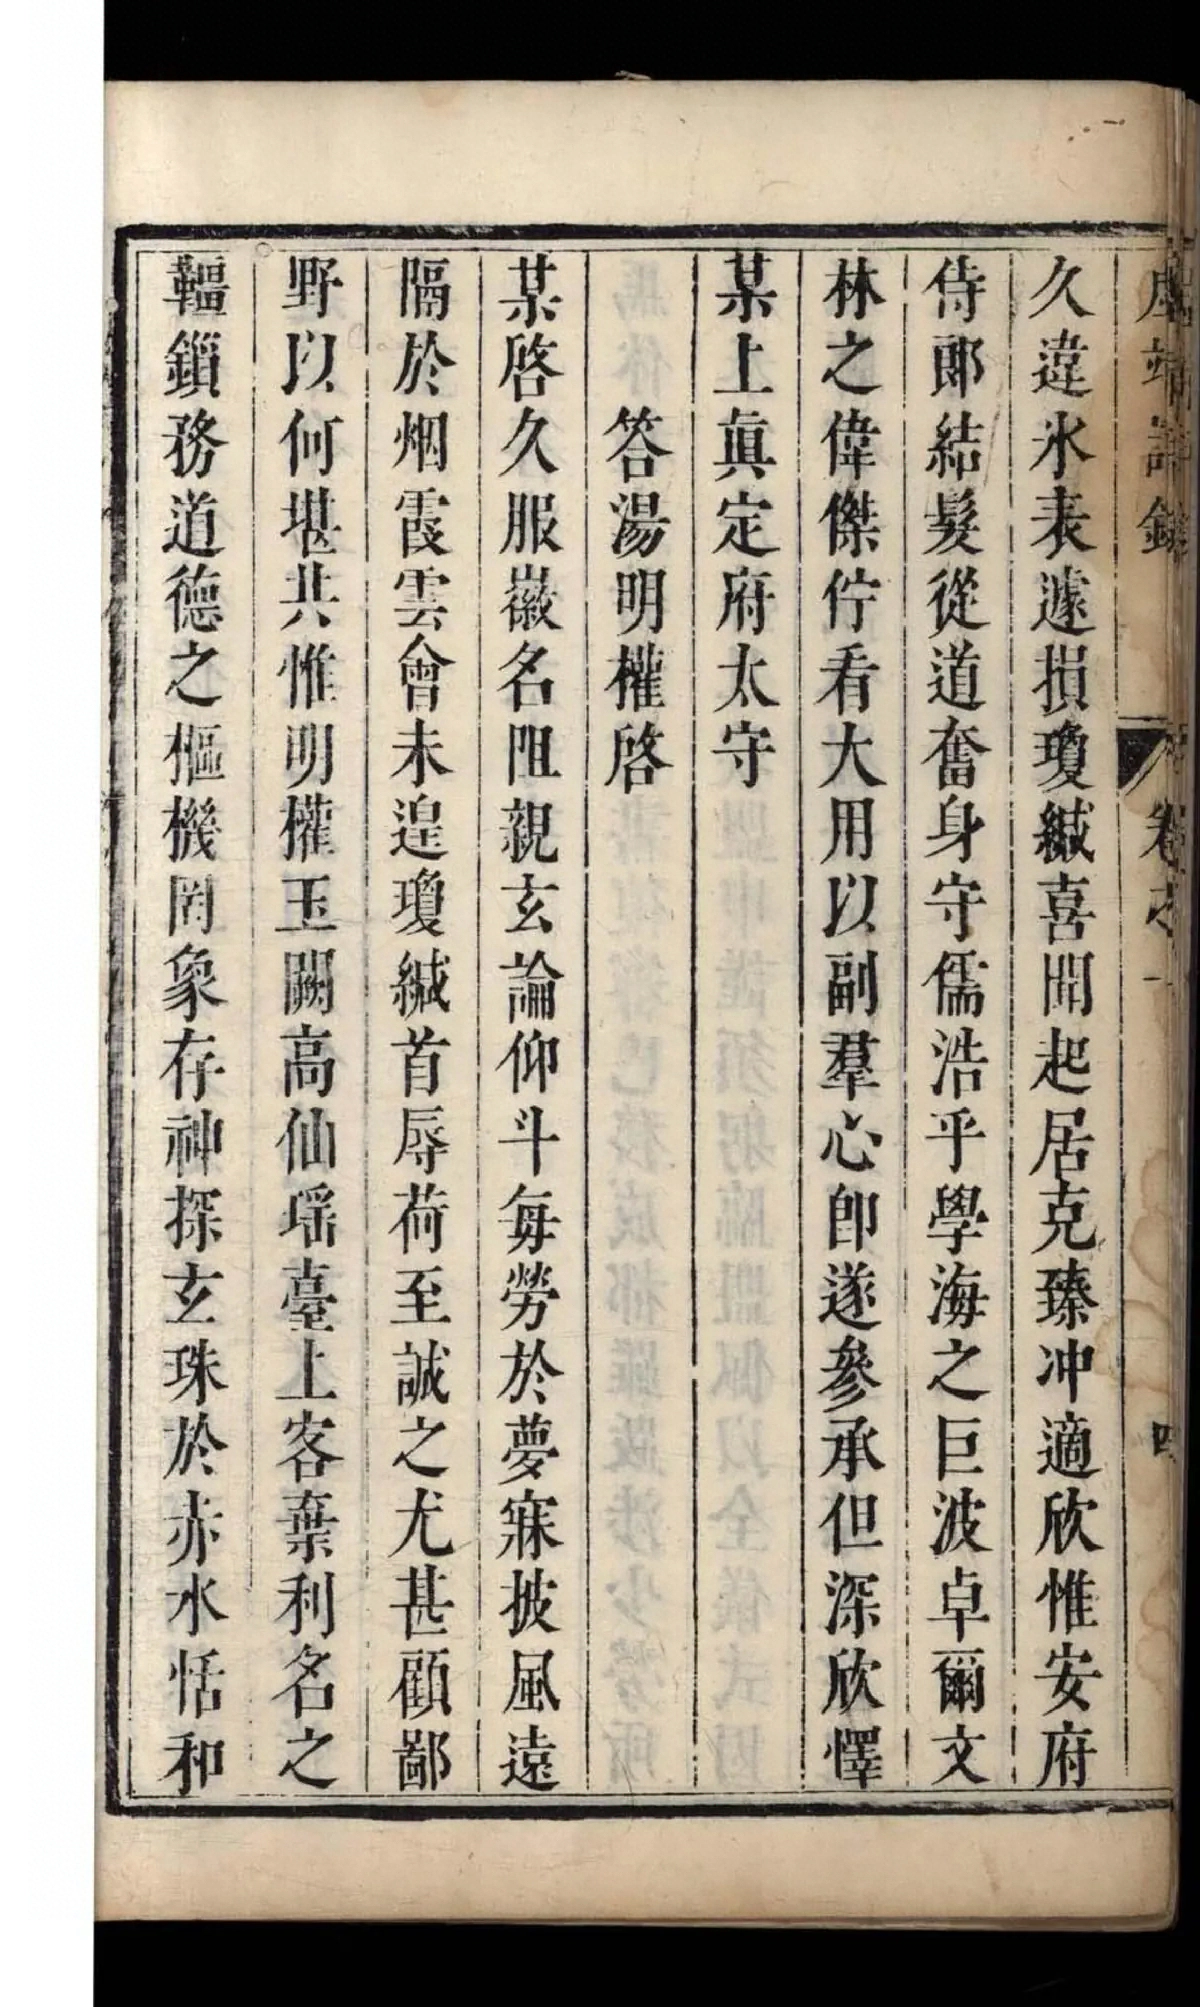 久違氷表遽損瓊緘喜聞起居克臻冲適欣惟安府
侍郎結髮從道奮身守儒浩乎學海之巨波卓爾文
林之偉傑佇看大用以副羣心卽遂參承但深欣懌
某上眞定府太守
答湯明權啓
某啓久服徽名阻親玄論仰斗每勞於夢寐披風遠
隔於烟霞雲會未遑瓊緘首辱荷至誠之尤甚顧鄙
野以何堪共惟明權玉闕高仙瑶臺上客棄利名之
韁鎖務道德之樞機罔象存神探玄珠於赤水恬和